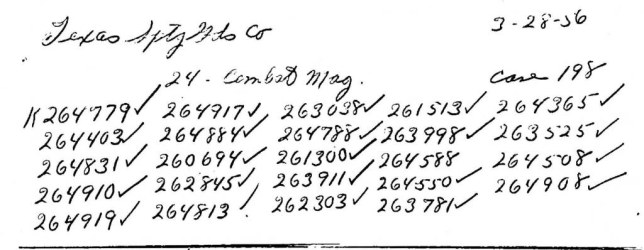 Texas Sptg Gds Co 3-28-56
24 - Combat Mag. Case 198
K264779✓ 264917✓ 263038✓ 261513✓ 264365✓
264403✓ 264884✓ 264788✓ 263998✓ 263525✓
264831✓ 260694✓ 261300✓ 264588 264508✓
264910✓ 262845✓ 263911✓ 264550✓ 264908✓
264919✓ 264813 262303✓ 263781✓